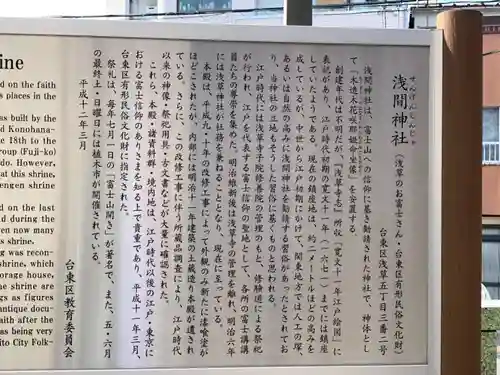 せんげんじんじゃ
浅間神社（浅草のお富士さん・台東区有形民俗文化財）
台東区浅草五丁目三番二号
浅間神社は、富士山への信仰に基き勧請された神社で、神体とし
て「木造木花咲耶姫命坐像」を安置する。
創建年代は不明だが、『浅草寺志』所収「寛文十一年江戸絵図」に
表記があり、江戸時代初期の寛文十一年（一六七一）までには鎮座
していたようである。現在の鎮座地は、約二メートルほどの高みを
成しているが、中世から江戸初期にかけて、関東地方では人工の塚、
あるいは自然の高みに浅間神社を勧請する習俗があったとされてお
り、当神社の立地もそうした習俗に基くものと思われる。
江戸時代には浅草寺子院修善院の管理のもと、修験道による祭祀
が行われ、江戸を代表する富士信仰の聖地として、各所の富士講講
員たちの尊崇を集めた。明治維新後は浅草寺の管理を離れ、明治六年
には浅草神社が社務を兼ねることとなり、現在に至っている。
本殿は、平成九・十年の改修工事によって外観のみ新たに漆喰塗が
ほどこされたが、内部には明治十一年建築の土蔵造り本殿が遺され
ている。さらに、この改修工事に伴う所蔵品調査により、江戸時代
以来の神像・祭祀用具・古文書などが大量に確認された。
これら、本殿・諸資料群・境内地は、江戸時代以後の江戸・東京に
おける富士信仰のありさまを知る上で貴重であり、平成十一年三月、
台東区有形民俗文化財に指定された。
祭礼は、毎年七月一日の「富士山開き」が著名で、また、五・六月
の最終土・日曜日には植木市が開催されている。
平成十二年三月
台東区教育委員会
ine
d on the faith
places in the
was built by the
d Konohana-
e 18th to the
group (Fuji-ko)
do. However,
at this shrine.
engen shrine
d on the last
ld during the
ven now many
s shrine.
g was recon-
which is the
orage house,
he shrine are
ngs as figures
antique docu-
aith after the
as being very
ito City Folk-